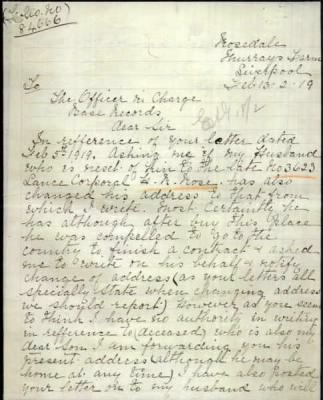 (L. No. No)
84666
Rosedale
Murrays Farm
Liverpool
Feb 13-2-19
To
The Officer i/c Charge
Base Records
Dear Sir
In reference of your letter dated
Feb 5th 1919. Asking me if my Husband
who is next of kin to the late No 3623
Lance Corporal L. R. Rose. has also
changed his address to that from
which I write. Most certainly he
has although after buy this Place
he was compelled to go to the
country to finish a contract & asked
me to write on his behalf & notify
change of address (as your letters all
specially state when changing address
we should report) However as you seem
to think I have no authority in writing
in reference to (deceased) who is also my
dear Son I am forwarding you his
present address (although he may be
home at any time) I have also posted
your letter on to my husband who will